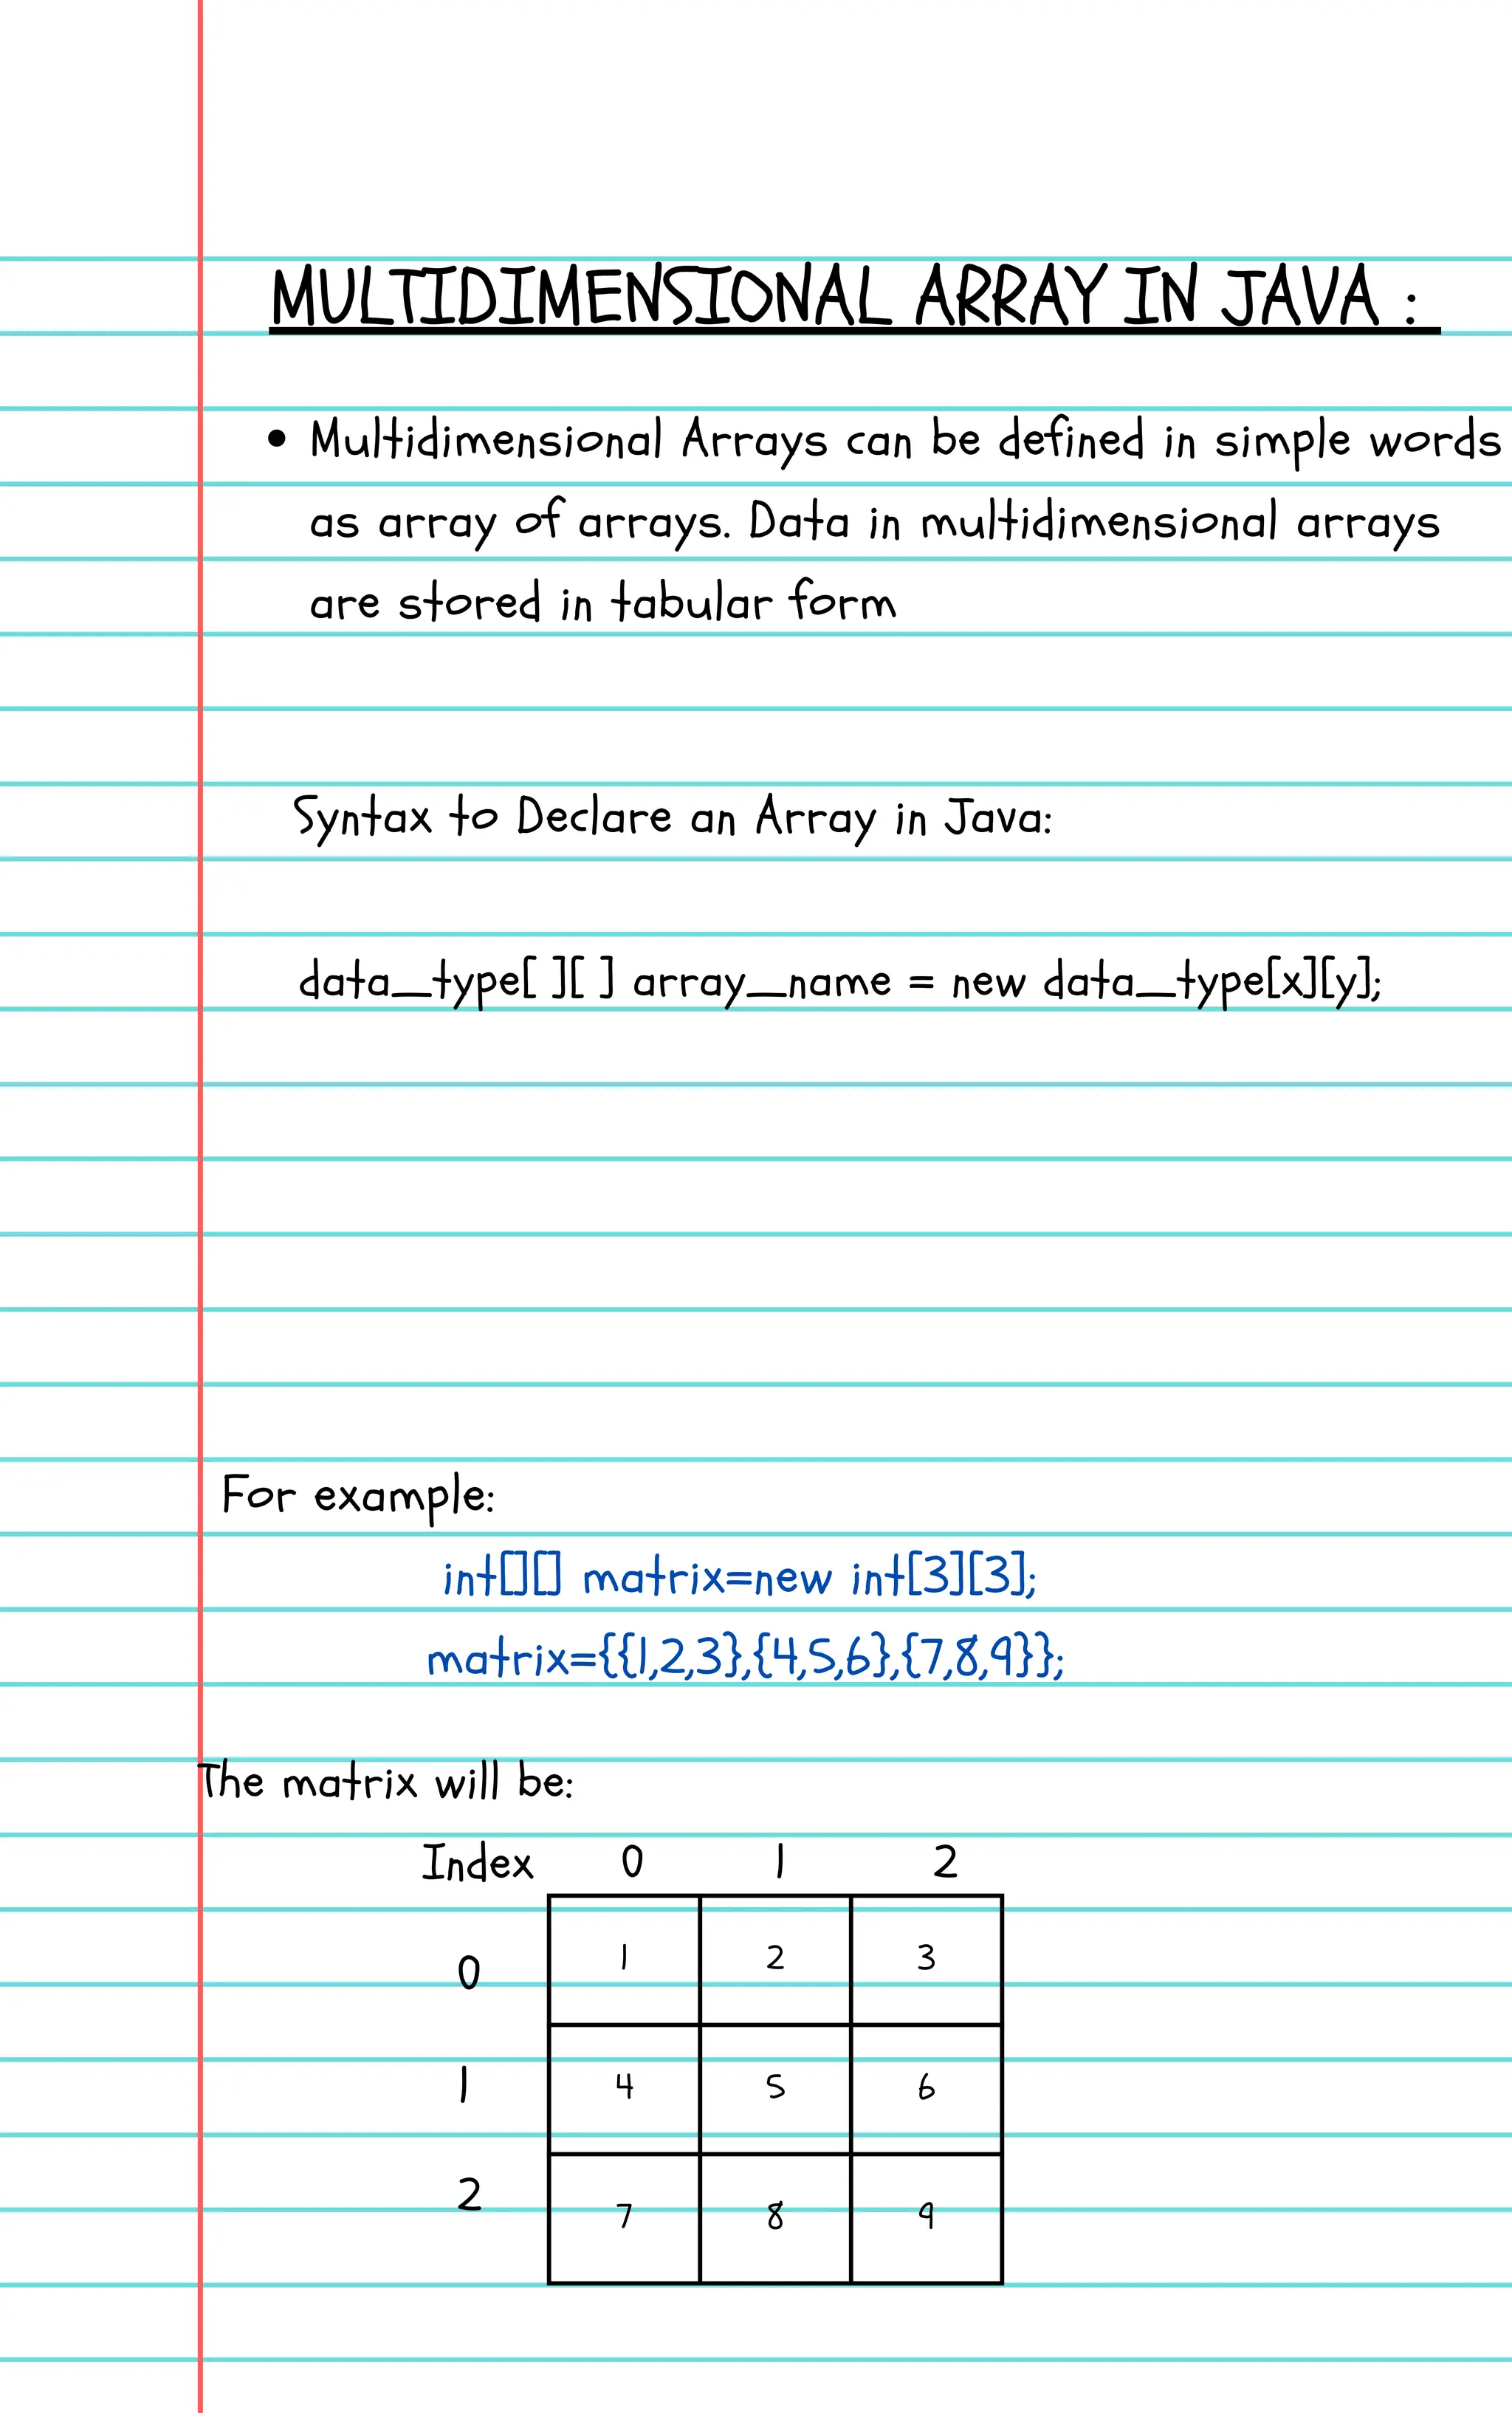 MULTIDIMENSIONAL ARRAY IN JAVA :
• Multidimensional Arrays can be defined in simple words
as array of arrays. Data in multidimensional arrays
are stored in tabular form
Syntax to Declare an Array in Java:
data_type[ ][ ] array_nane = new data_type[x][y];
For example:
int[][] matrix=new int[3][3];
matrix={{1,2,3},{4,5,6},{7,8,9}};
The matrix will be:
Index 0 1 2
0 1 2 3
1 4 5 6
2 7 8 9